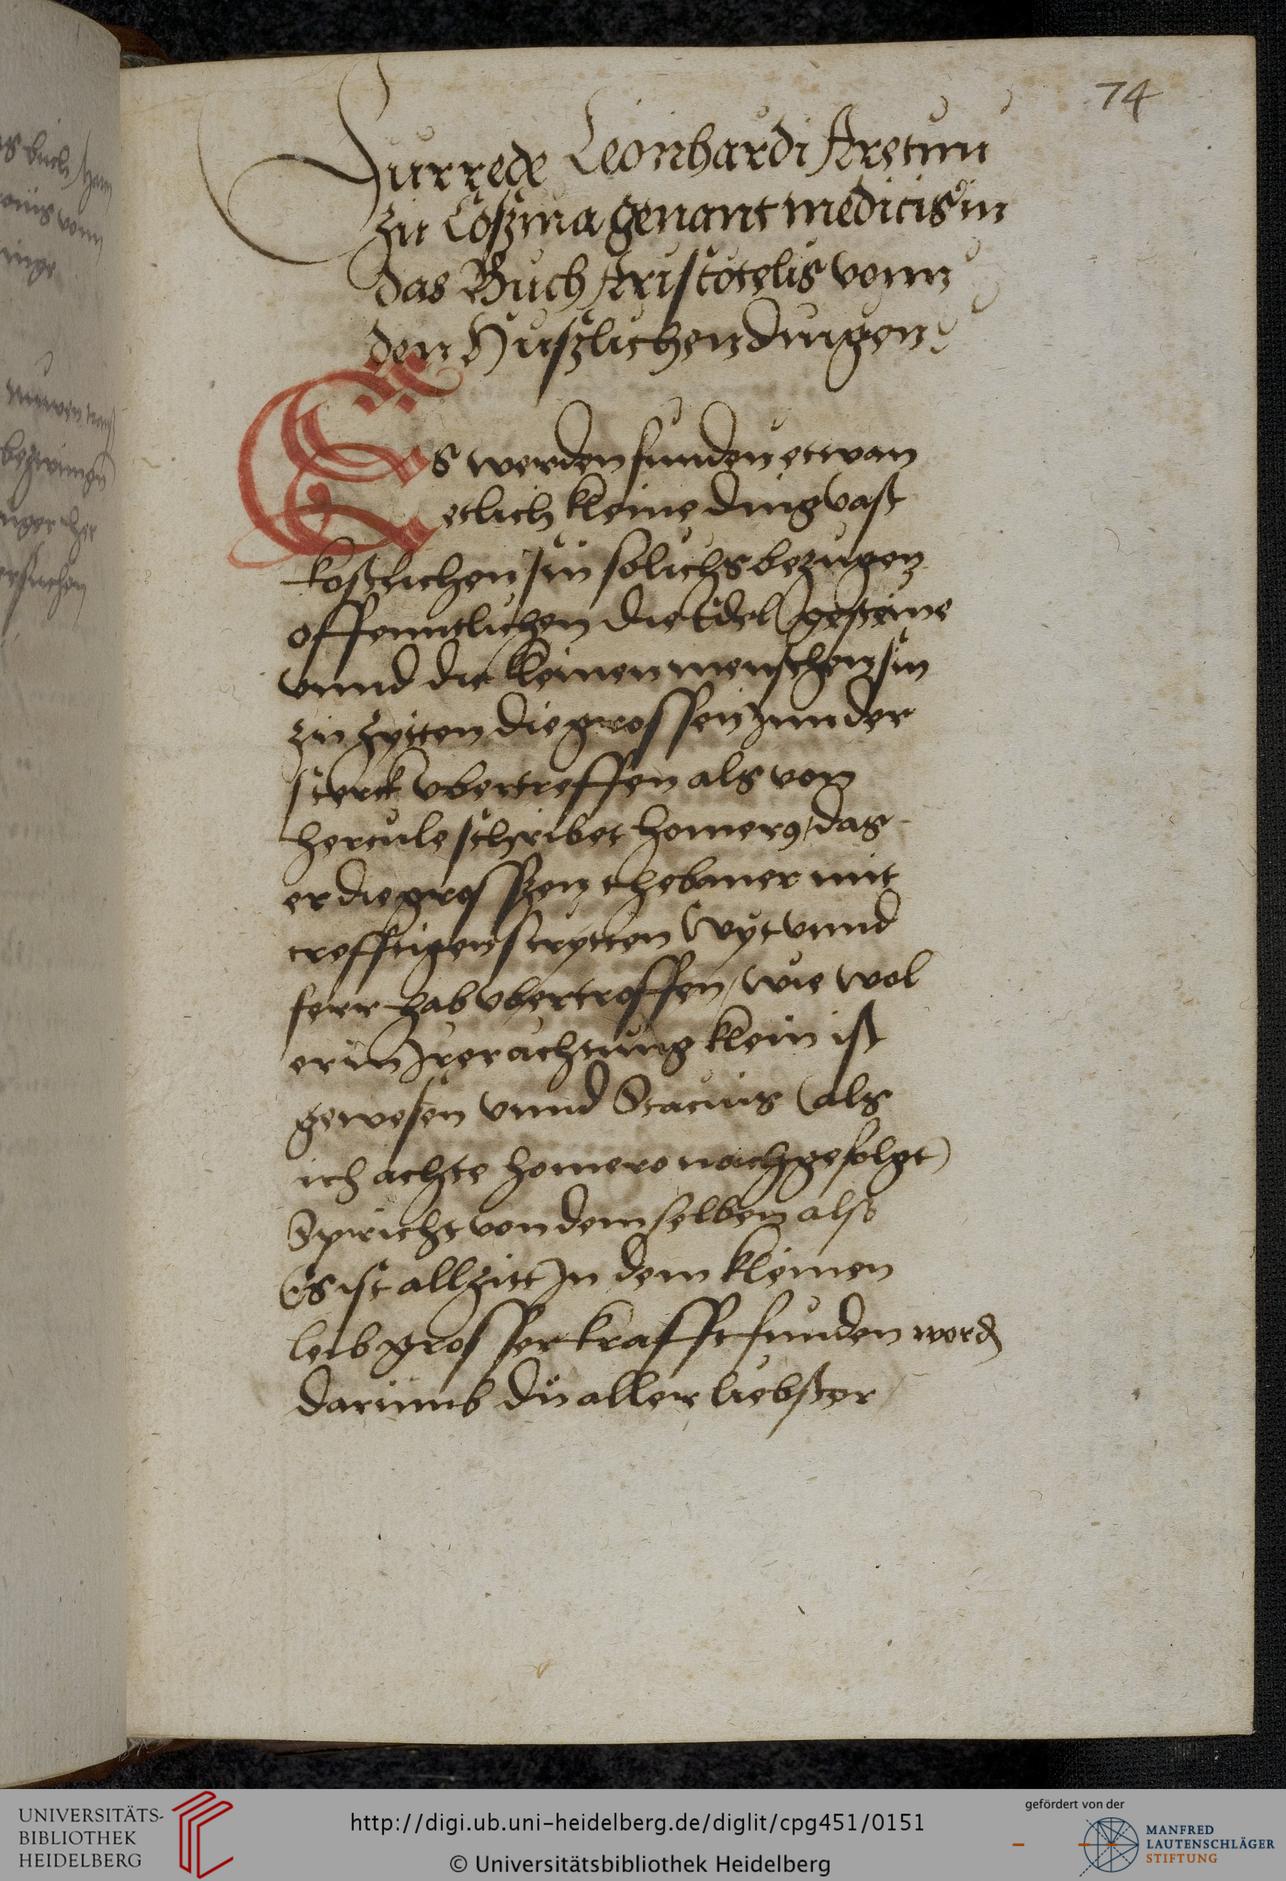 74
Furrede Leonhardi Aretini
zu Coßma genant medicis in
das Buch Aristotelis vonn
den Hußlichen dingen
Es werden funden ettwan
etlich kleine ding vast
kostlichen sin solichs bezugen
offenntlichen die Edel gesteine
vnnd die kleinen menschen sin
zu zytten die grossen Jnn der
sterck vbertreffen als von
hercule schribet homerus / das
er die grossen thebaner mit
crefftigen strytten wyt vnnd
ferr hab vbertroffen / wie wol
er in Jrer achtung klein ist
gewesen vnnd Stacius (als
ich achte homero nachgefolgt)
Spricht von dem selben also
Es ist allzitt Jn dem kleinen
leib grosser krafft funden word
darumb du aller liebster
UNIVERSITÄTS-
BIBLIOTHEK
HEIDELBERG
http://digi.ub.uni-heidelberg.de/diglit/cpg451/0151
© Universitätsbibliothek Heidelberg
gefördert von der
MANFRED
LAUTENSCHLÄGER
STIFTUNG